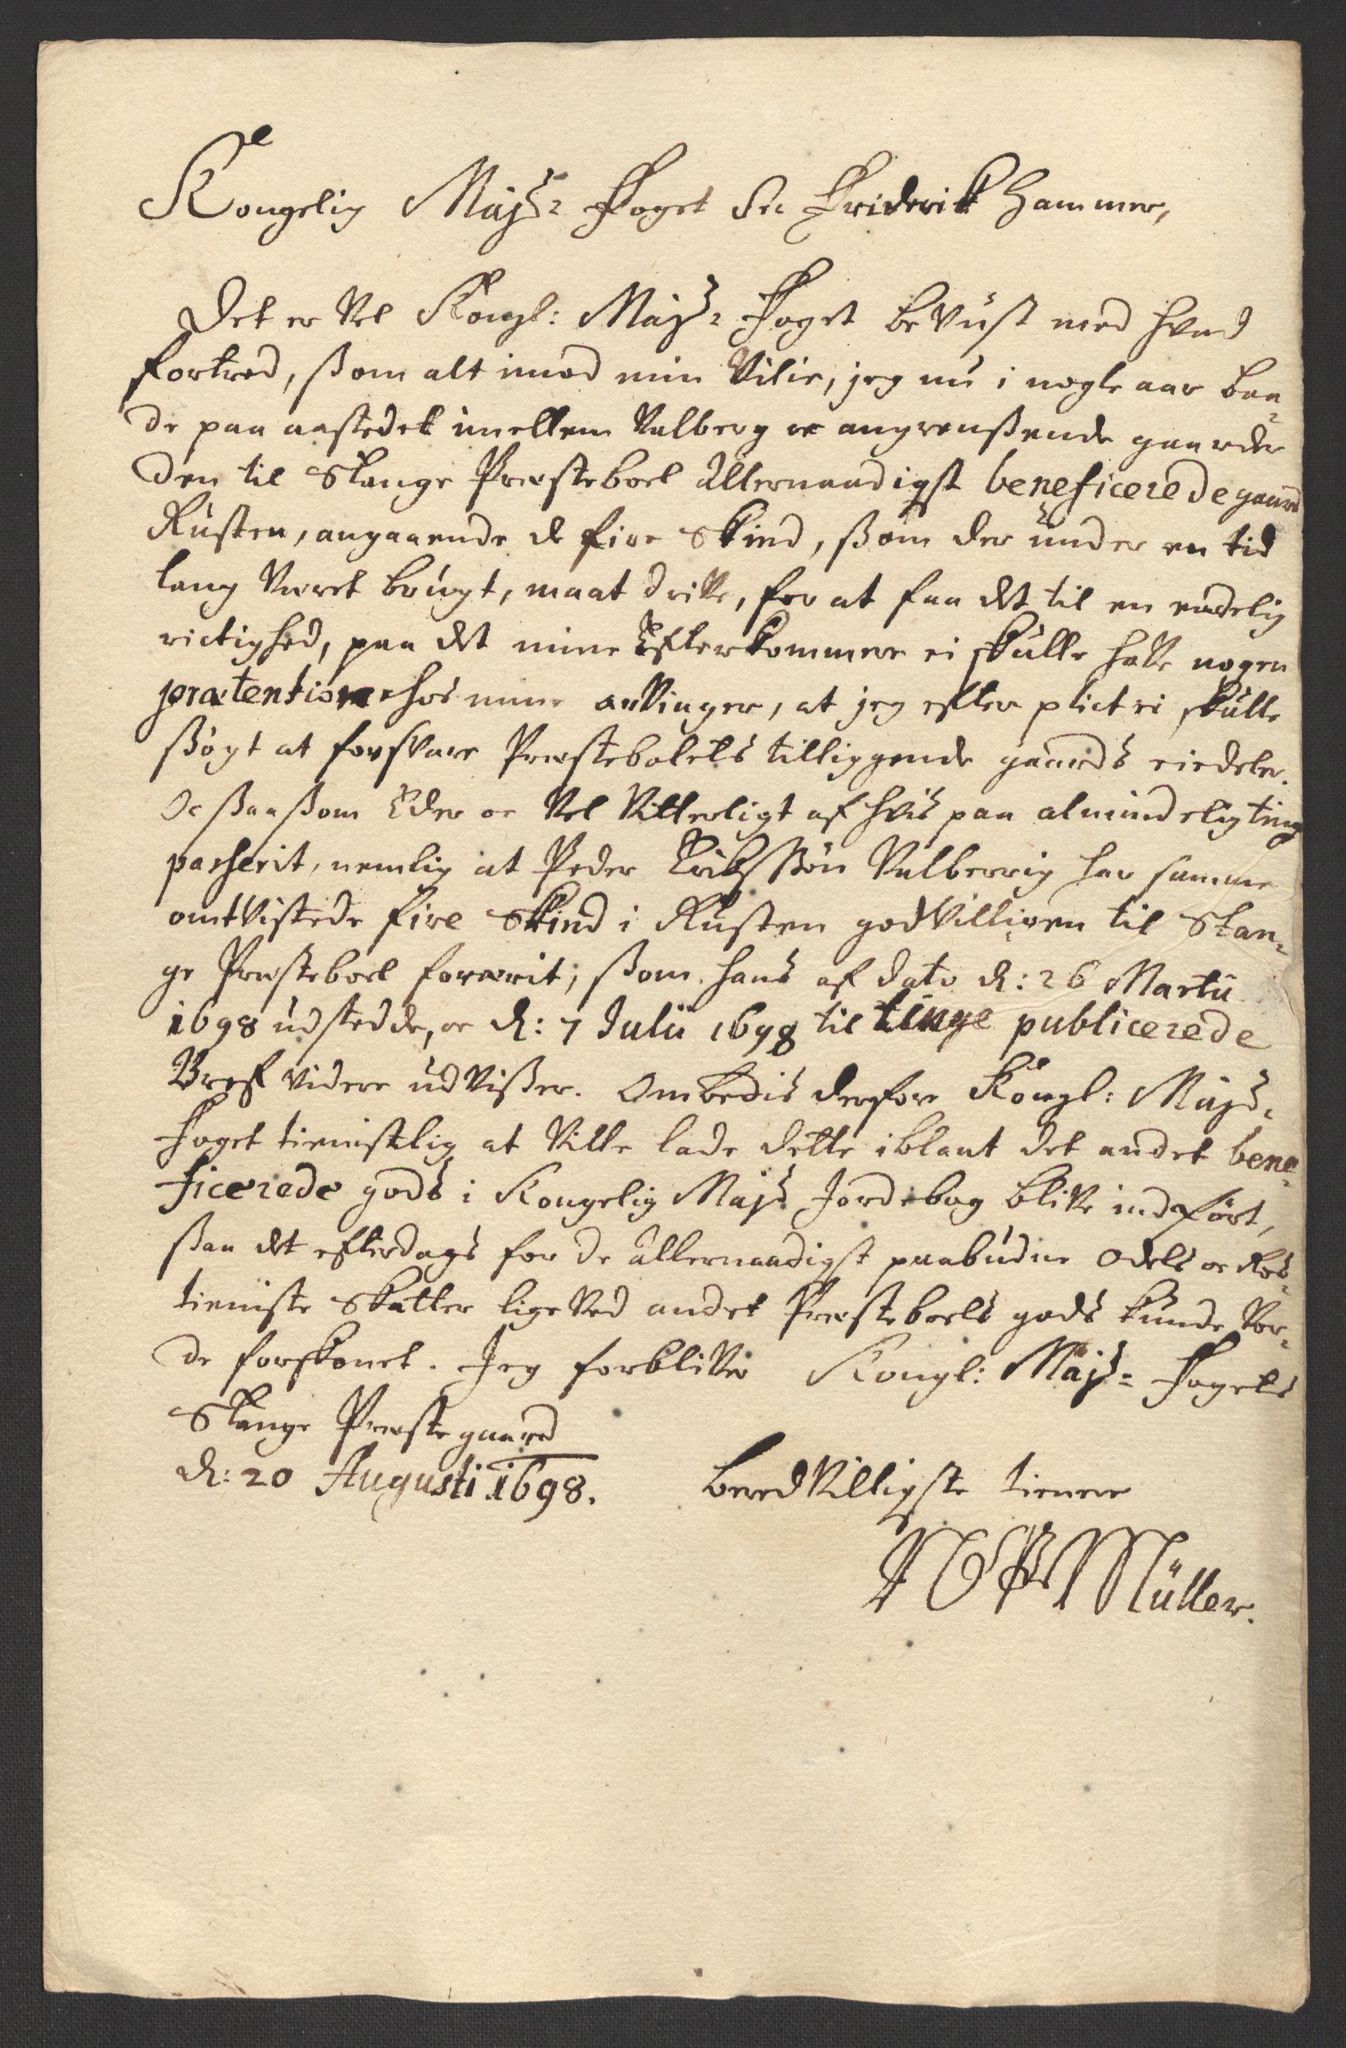 Kongelig Majs: Foget Sr Friderik Hammer,
Det er Vel Kongl: Majs: Foget beVust med hvad
fortred, ßom alt imod min Vilie, jeg nu i nogle aar baa-
de paa aastedet imellem Valberg oc angrenßende gaarder
den til Stange Præsteboel Allernaadigst beneficerede gaard
Rusten, angaaende de fire Skind, ßom der under en tid
lang Været brugt, maat driVe, for at faa det til en endelig
rictighed, paa det mine Efterkommere ei skulle haVe nogen
prætention hos mine arVinger, at jeg efter plict ei skulle
ßøgt at forsVare Præstebolets tilliggende gaards eiedeler.
Oc ßaaßom Eder er Vel Vitterligt af hvis paa almindelig ting
passerit, nemlig at Peder Erikßøn Valberrig har samme
omtVistede fire Skind i Rusten godVilligen til Stan-
ge Præsteboel forærit, ßom hans af dato d: 26 Martii
1698 udstedde, oc d: 7 Julii 1698 til tinge publicerede
Bref videre udVißer. Ombedis derfore Kongl: Majs:
Foget tienistlig at Ville lade dette iblant det andet bene-
ficerede gods i Kongelig Majs Jordebog bliVe indført,
ßaa det efterdags for de Allernaadigst paabudne Odels oc Ros-
tieniste Skatter lige Ved andet Præsteboels gods kunde Vor-
de forskonet. Jeg forbliVer Kongl: Majs: Fogets
Stange Præstegaard
d: 20 Augusti 1698.
beredVilligste tienere
Müller.